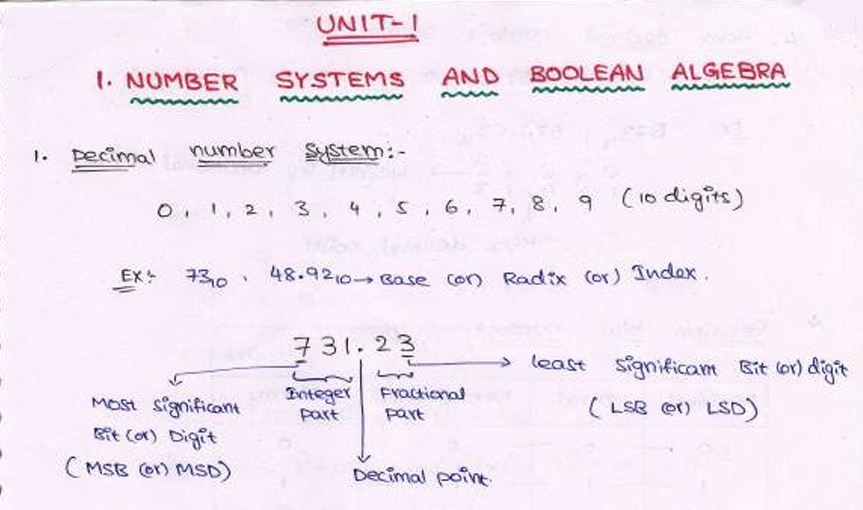 UNIT-1
1. NUMBER SYSTEMS AND BOOLEAN ALGEBRA
1. Decimal number system:-
0, 1, 2, 3, 4, 5, 6, 7, 8, 9 (10 digits)
Ex:- 73₁₀, 48.92₁₀→ Base (or) Radix (or) Index.
731.23
least significant Bit (or) digit
(LSB (or) LSD)
Most significant
Bit (or) Digit
(MSB (or) MSD)
Integer
part
Fractional
part
Decimal point.